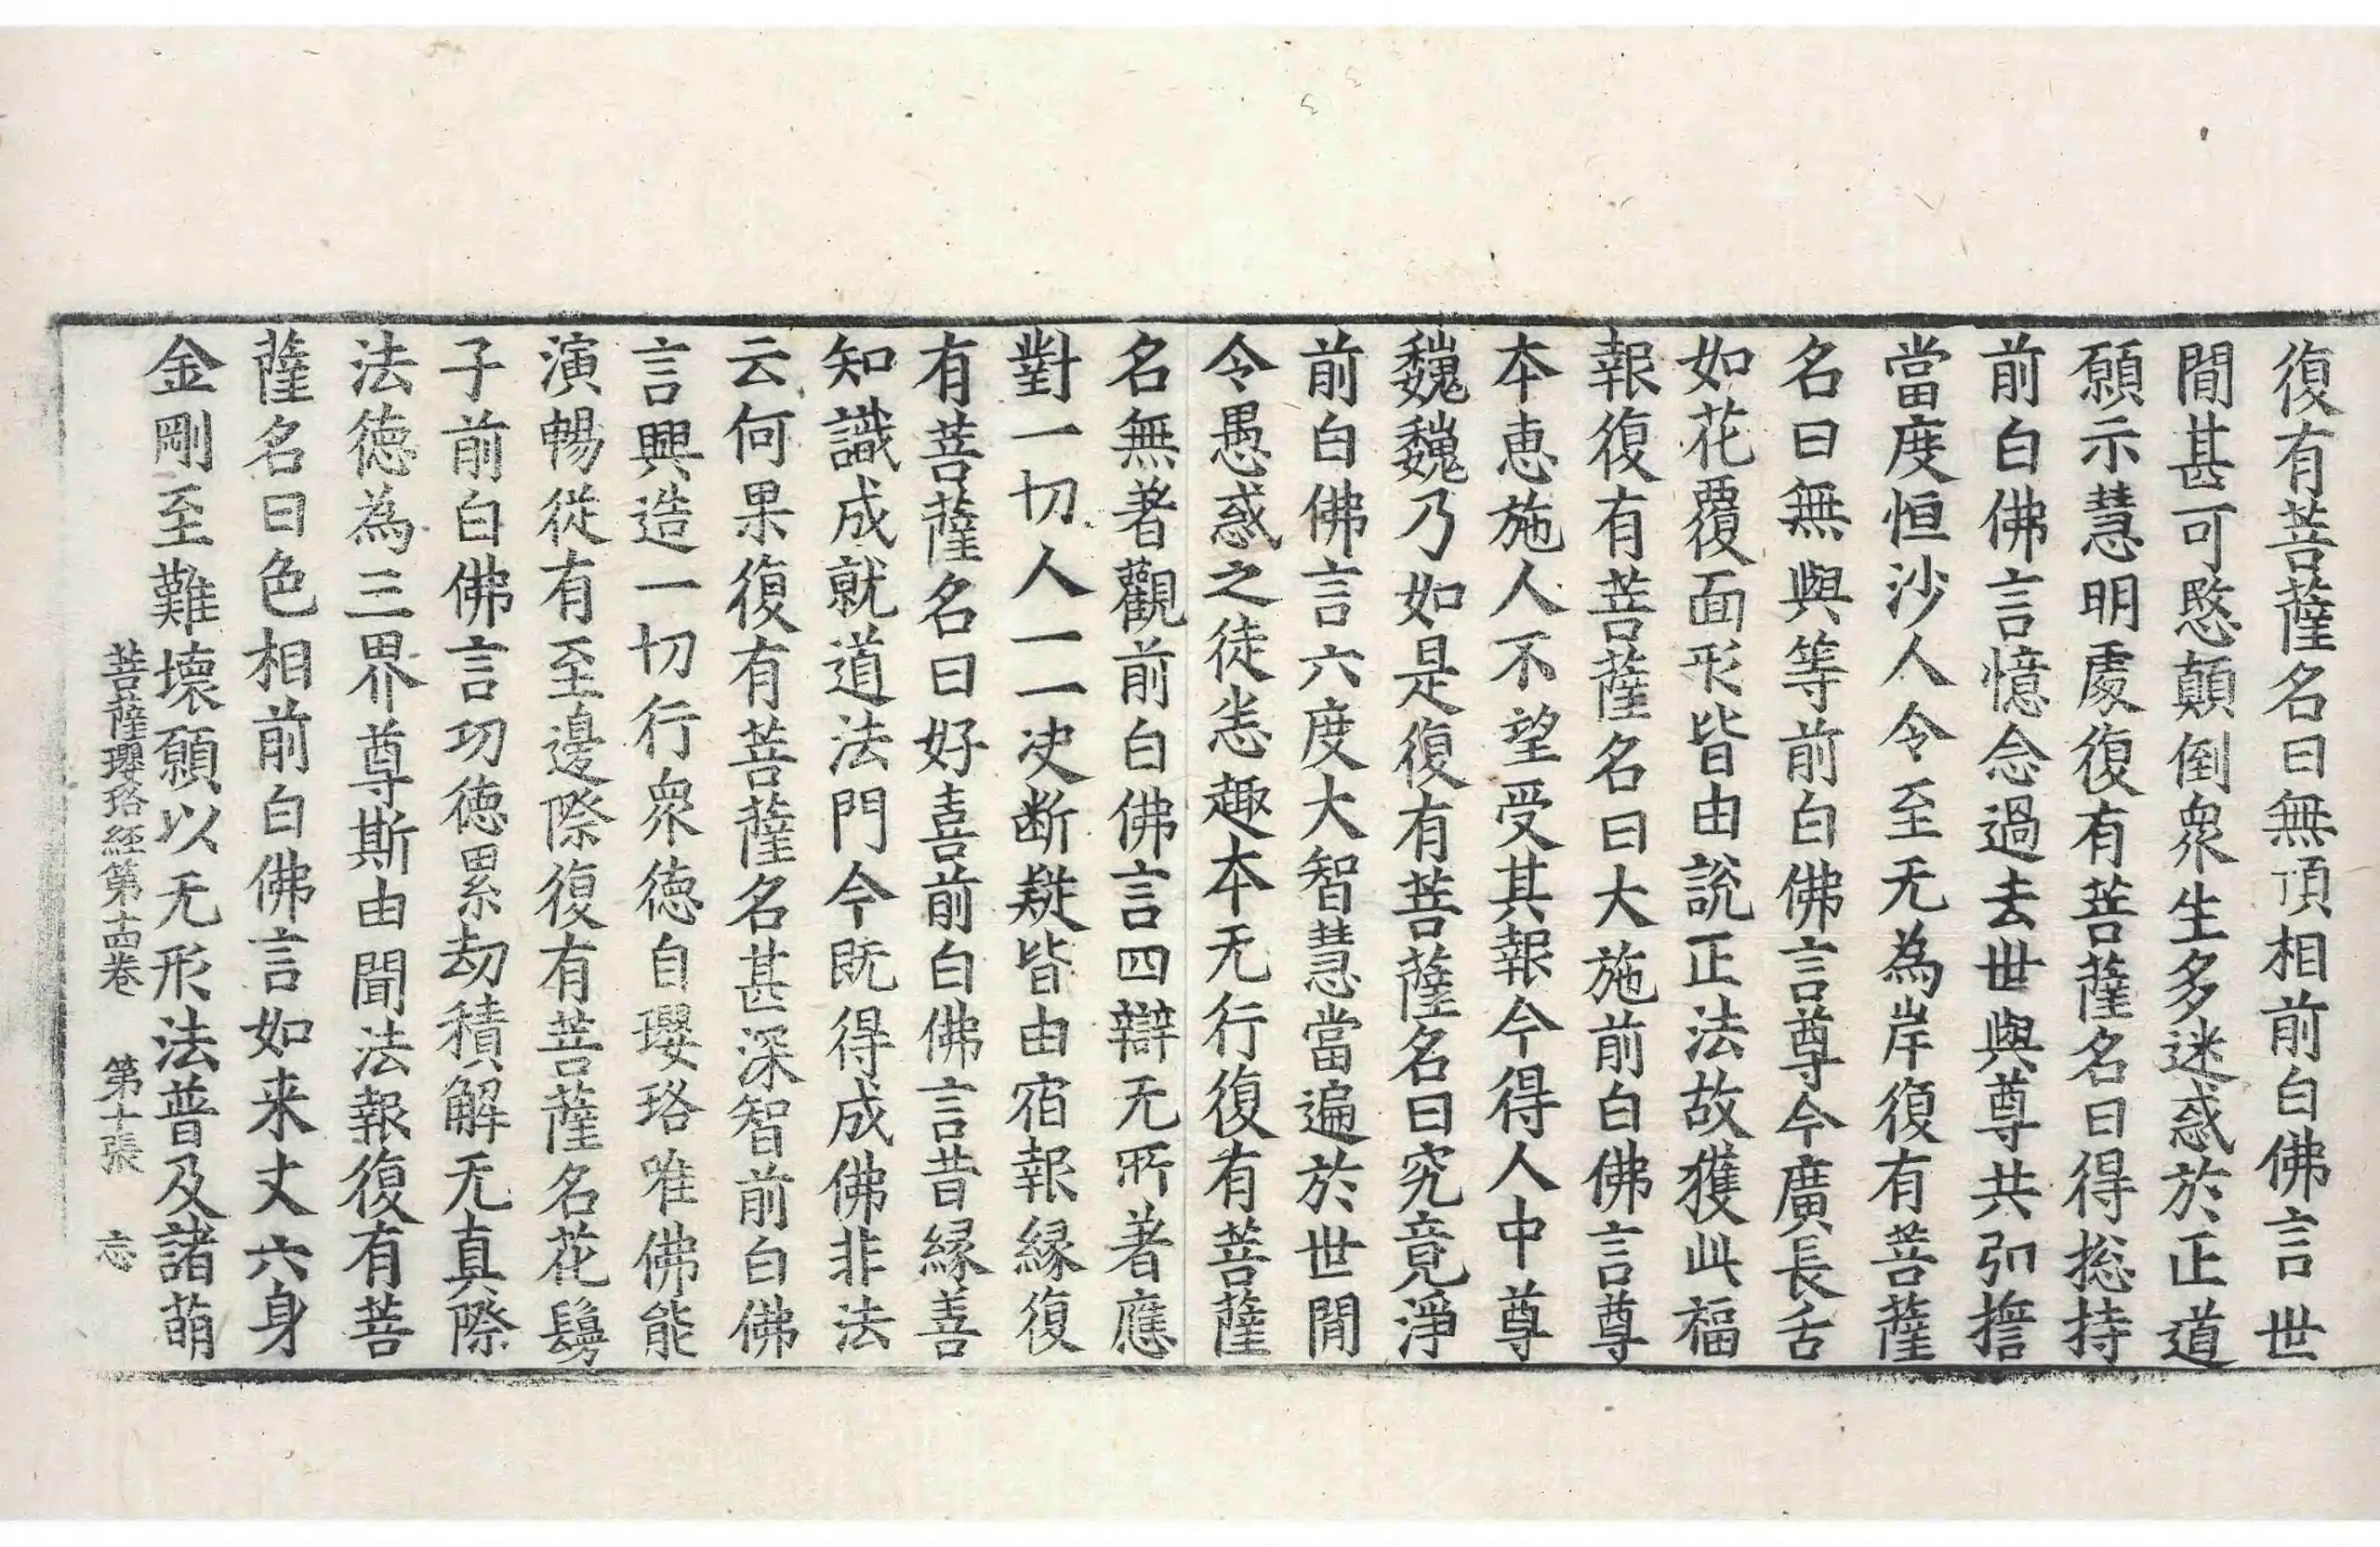 復有菩薩名曰無頂相前白佛言世
間甚可愍顛倒衆生多迷惑於正道
願示慧明處復有菩薩名曰得揔持
前白佛言憶念過去世與尊共弘誓
當度恒沙人令至无為岸復有菩薩
名曰無與等前白佛言尊今廣長舌
如花覆面形皆由說正法故獲此福
報復有菩薩名曰大施前白佛言尊
本恵施人不望受其報今得人中尊
巍巍乃如是復有菩薩名曰究竟淨
前白佛言六度大智慧當遍於世間
令愚惑之徒恙趣本无行復有菩薩
名無著觀前白佛言四辯无所著應
對一切人一一决断疑皆由宿報緣復
有菩薩名曰好喜前白佛言昔緣善
知識成就道法門今既得成佛非法
云何果復有菩薩名甚深智前白佛
言興造一切行衆徳自瓔珞唯佛能
演暢從有至邊際復有菩薩名花鬘
子前白佛言功徳累劫積解无真際
法徳為三界尊斯由聞法報復有菩
薩名曰色相前白佛言如来丈六身
金剛至難壞願以无形法普及諸萌
菩薩瓔珞経第十四卷 第十張 忘